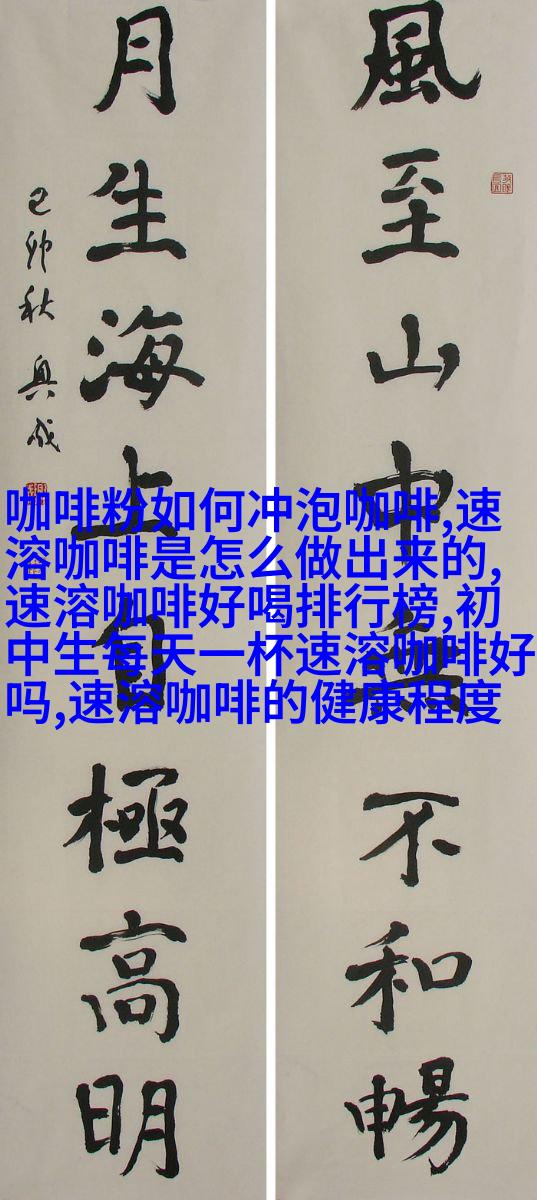 風至山中無不和暢
月生海上自極高明
己卯秋
咖啡粉如何冲泡咖啡,速
溶咖啡是怎么做出来的,
速溶咖啡好喝排行榜,初
中生每天一杯速溶咖啡好
吗,速溶咖啡的健康程度